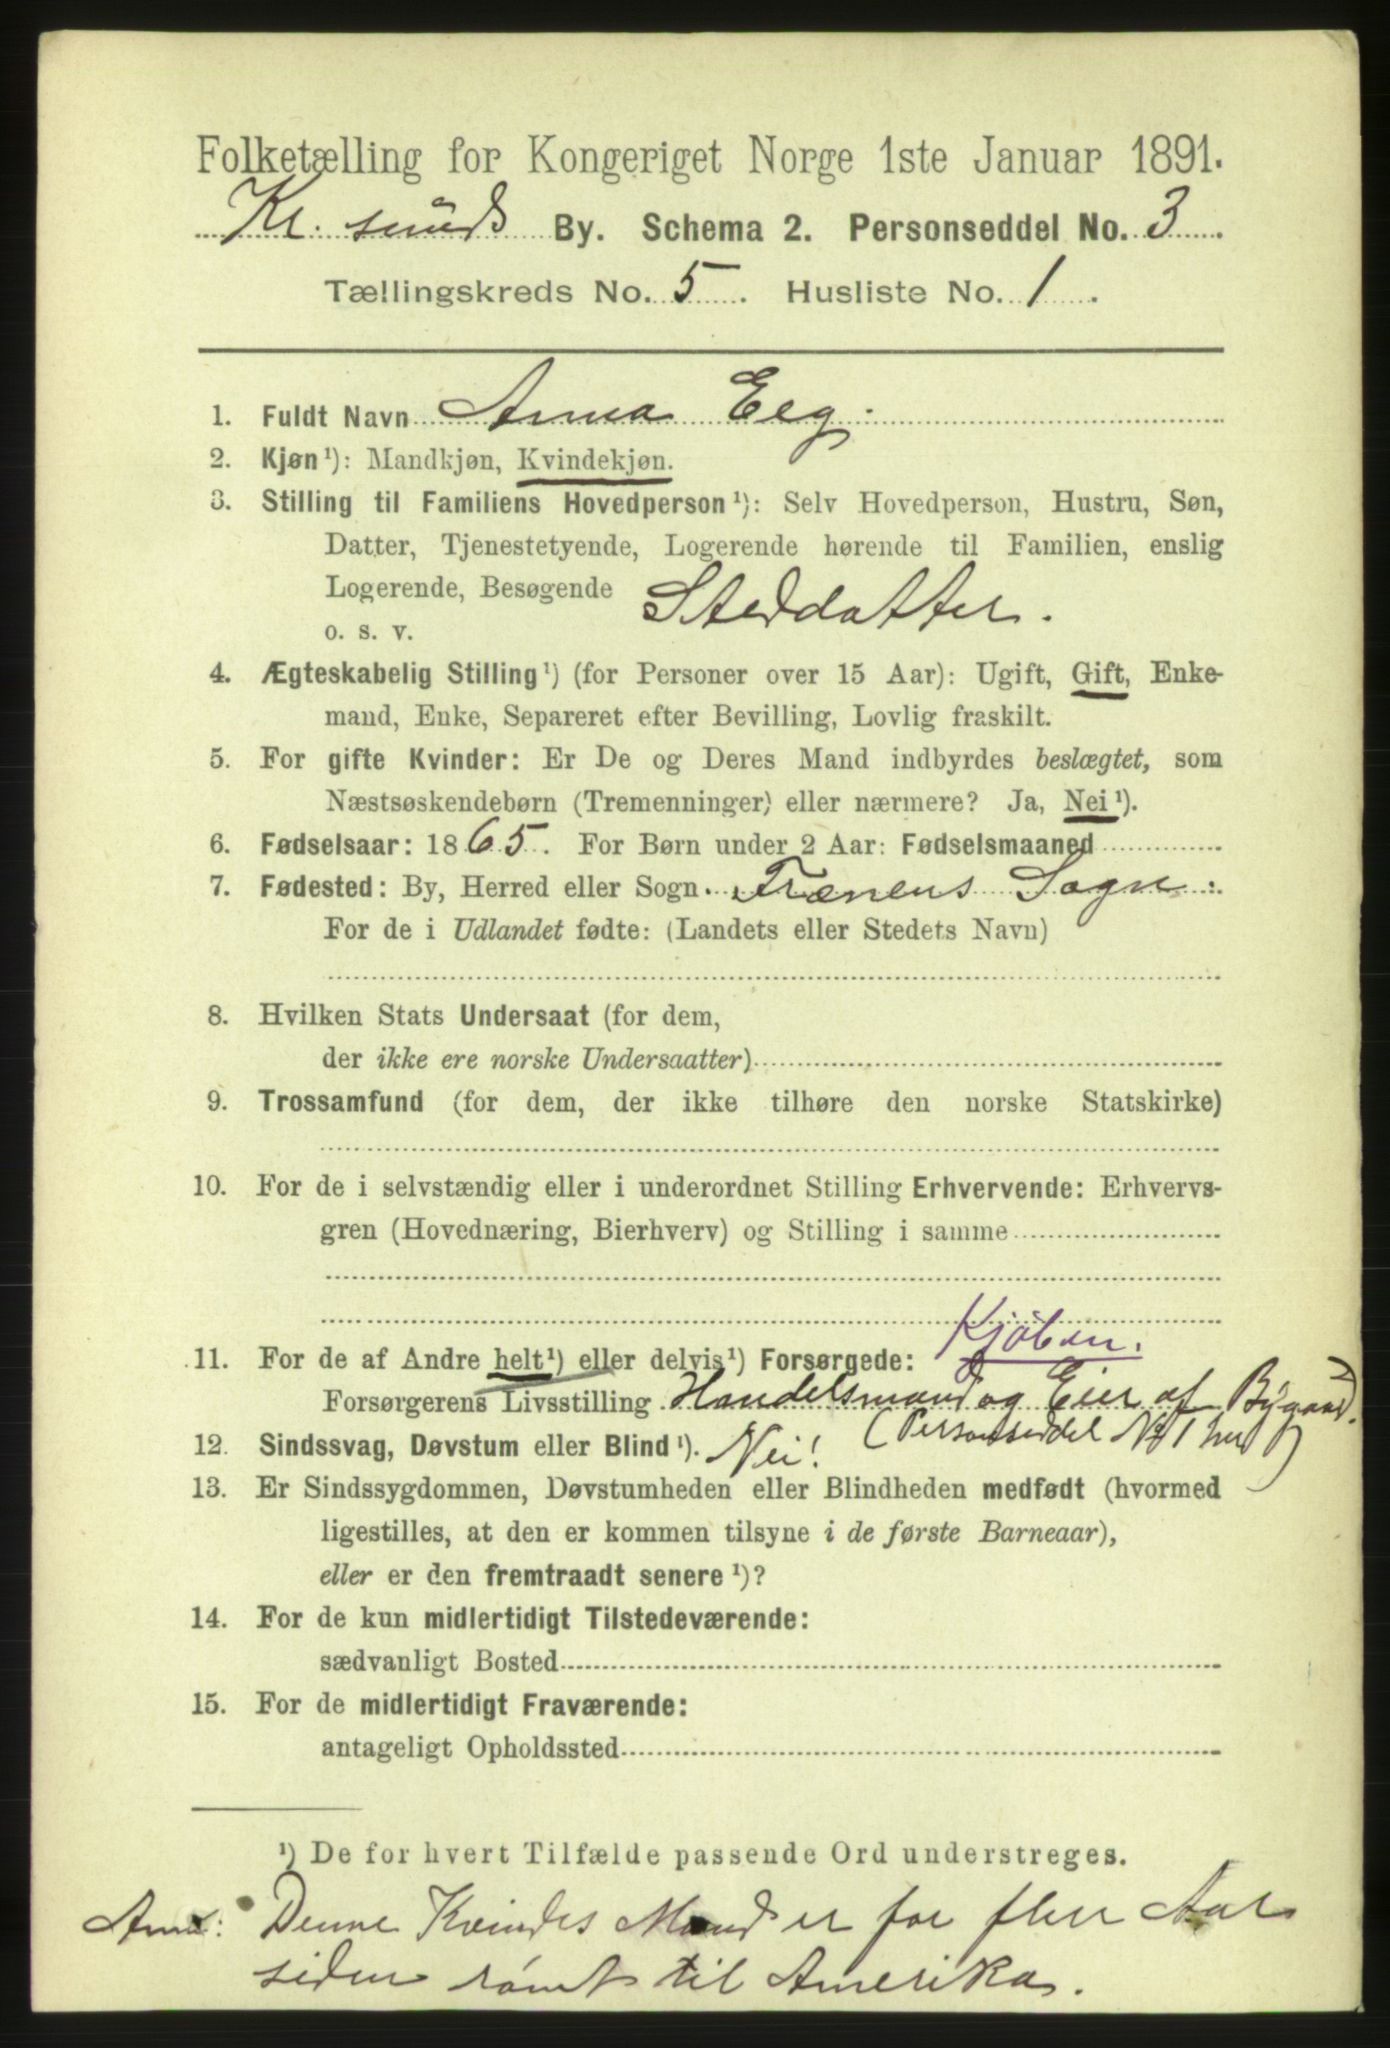 Folketælling for Kongeriget Norge 1ste Januar 1891.
Kr. sunds By. Schema 2. Personseddel No. 3
Tællingskreds No. 5. Husliste No. 1.
1. Fuldt Navn Anna Eeg.
2. Kjøn ¹): Mandkjøn, Kvindekjøn.
3. Stilling til Familiens Hovedperson ¹): Selv Hovedperson, Hustru, Søn,
Datter, Tjenestetyende, Logerende hørende til Familien, enslig
Logerende, Besøgende Steddatter.
o. s. v.
4. Ægteskabelig Stilling ¹) (for Personer over 15 Aar): Ugift, Gift, Enke-
mand, Enke, Separeret efter Bevilling, Lovlig fraskilt.
5. For gifte Kvinder: Er De og Deres Mand indbyrdes beslægtet, som
Næstsøskendebørn (Tremenninger) eller nærmere? Ja, Nei ¹).
6. Fødselsaar: 1865. For Børn under 2 Aar: Fødselsmaaned
7. Fødested: By, Herred eller Sogn. Trænens Sogn.
For de i Udlandet fødte: (Landets eller Stedets Navn)
8. Hvilken Stats Undersaat (for dem,
der ikke ere norske Undersaatter)
9. Trossamfund (for dem, der ikke tilhøre den norske Statskirke)
10. For de i selvstændig eller i underordnet Stilling Erhvervende: Erhvervs-
gren (Hovednæring, Bierhverv) og Stilling i samme
Kjøben.
11. For de af Andre helt ¹) eller delvis ¹) Forsørgede:
Forsørgerens Livsstilling Handelsmand og Eier af Bygaard.
(Personseddel No 1 her)
12. Sindssvag, Døvstum eller Blind ¹). Nei!
13. Er Sindssygdommen, Døvstumheden eller Blindheden medfødt (hvormed
ligestilles, at den er kommen tilsyne i de første Barneaar),
eller er den fremtraadt senere ¹)?
14. For de kun midlertidigt Tilstedeværende:
sædvanligt Bosted
15. For de midlertidigt Fraværende:
antageligt Opholdssted
¹) De for hvert Tilfælde passende Ord understreges.
Anm: Denne Kvindes Mand er for flere Aar
siden römt til Amerika.